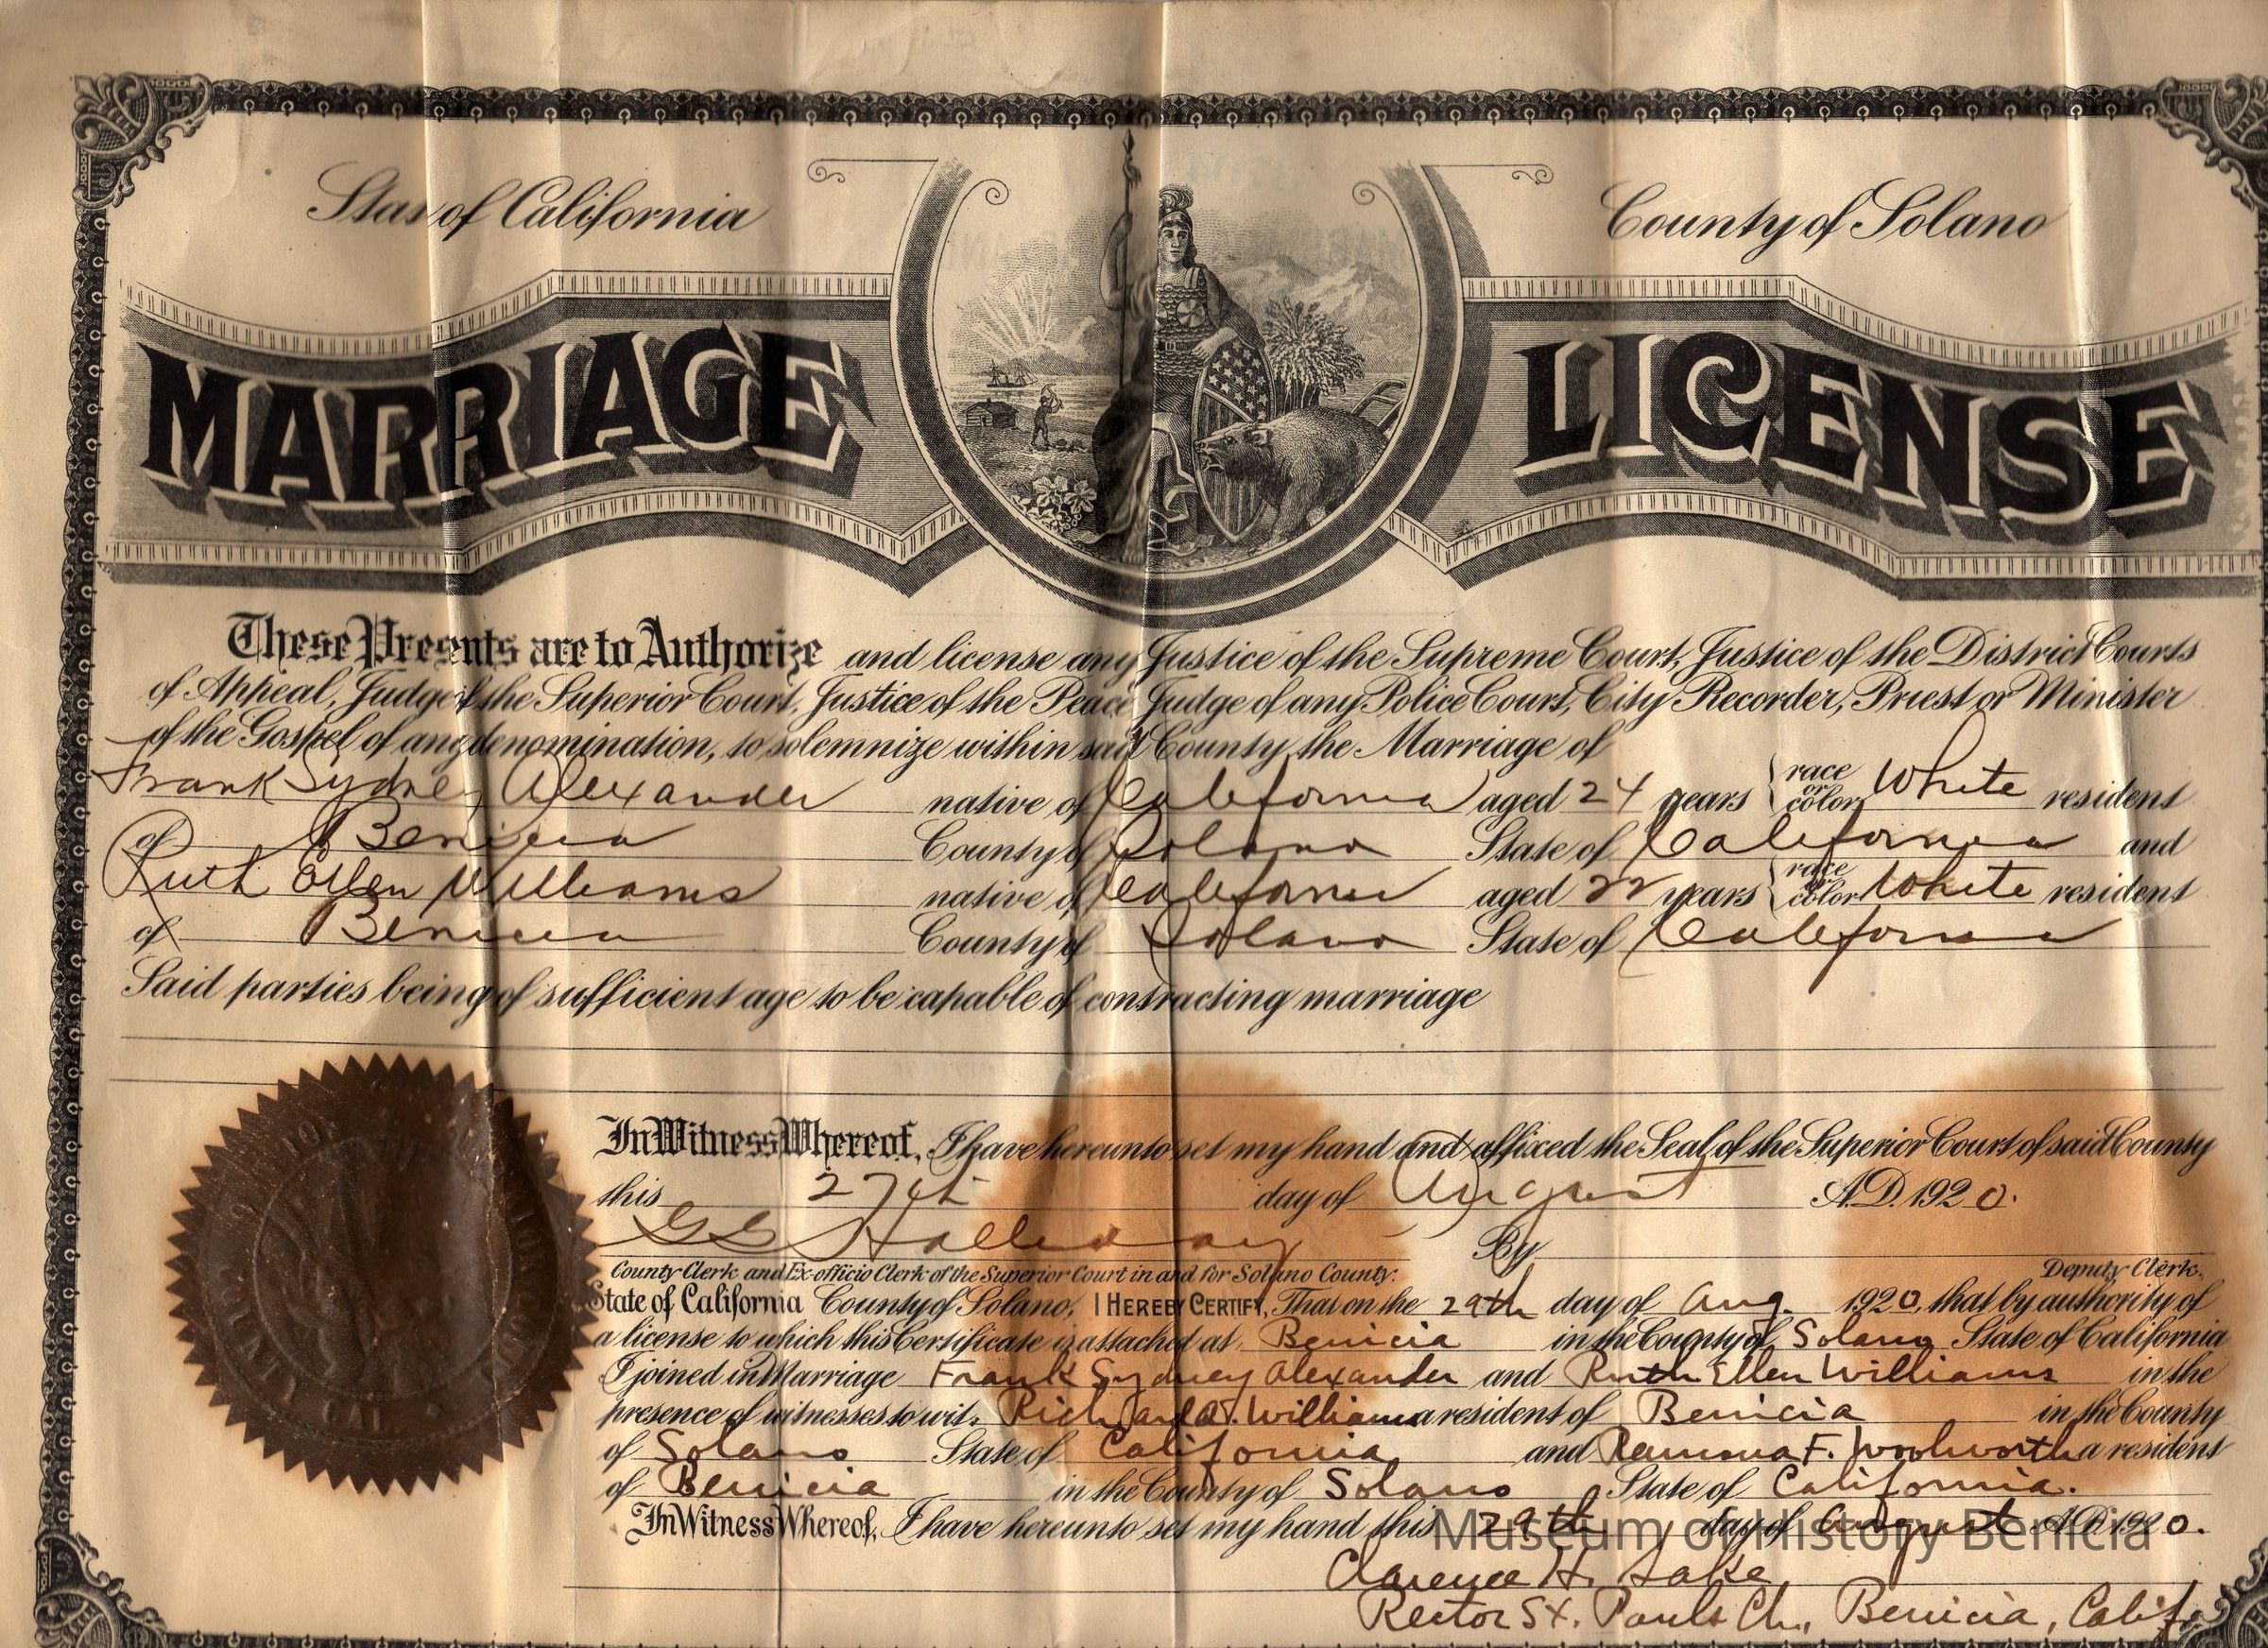 State of California
County of Solano
MARRIAGE LICENSE
These Presents are to Authorize and license any Justice of the Supreme Court, Justice of the District Courts
of Appeal, Judge of the Superior Court, Justice of the Peace, Judge of any Police Court, City Recorder, Priest or Minister
of the Gospel of any denomination, to solemnize within said County the Marriage of
Frank Sydney Alexander native of California aged 24 years race or color White resident
of Benicia County of Solano State of California and
Ruth Ellen Williams native of California aged 22 years race or color White resident
of Benicia County of Solano State of California
Said parties being of sufficient age to be capable of contracting marriage
In Witness Whereof, I have hereunto set my hand and affixed the Seal of the Superior Court of said County
this 27th day of August A.D. 1920.
G G Halliday By
County Clerk and Ex-officio Clerk of the Superior Court in and for Solano County.
Deputy Clerk.
State of California County of Solano. I HEREBY CERTIFY, That on the 29th day of Aug. 1920, that by authority of
a license to which this Certificate is attached at Benicia in the County of Solano State of California
I joined in Marriage Frank Sydney Alexander and Ruth Ellen Williams in the
presence of witnesses to wit. Richard Williams a resident of Benicia in the County
of Solano State of California and Ramona F. Woolworth a resident
of Benicia in the County of Solano State of California.
In Witness Whereof, I have hereunto set my hand this 29th day of August A.D. 1920.
Museum of History Benicia
Clarence H. Lake
Rector St. Pauls Ch., Benicia, Calif